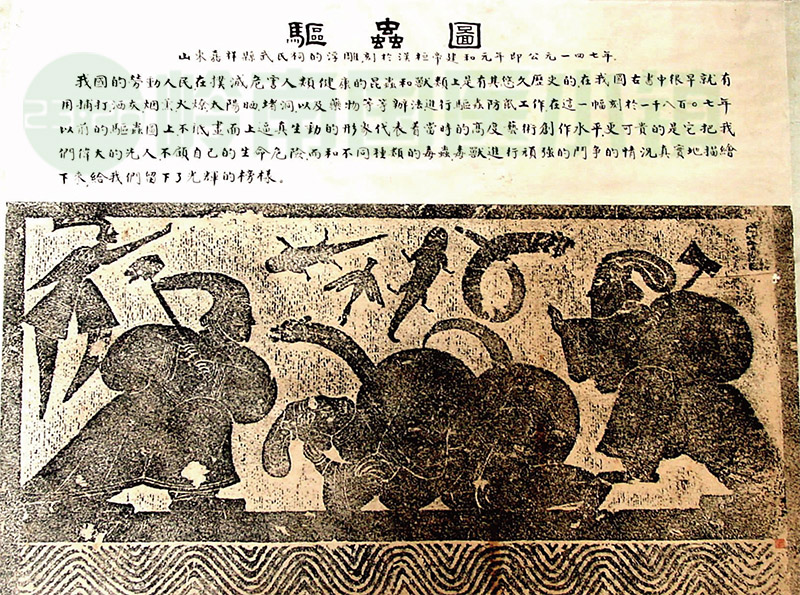 驅蟲圖
山東嘉祥縣武氏祠的浮雕刻於漢桓帝建和元年即公元一四七年.
我國的勞動人民在撲滅危害人類健康的昆蟲和獸類上是有其悠久歷史的,在我國古書中很早就有
用捕打,洒灰烟熏火燎太陽晒,堵洞,以及藥物等等辦法進行驅蟲防鼠工作在這一幅刻於一千八百〇七年
以前的驅蟲圖上不祇畫面上逼真生動的形象代表着當時的高度藝術創作水平更可貴的是它把我
們偉大的先人不顧自己的生命危險而和不同種類的毒蟲毒獸進行頑強的鬥爭的情況真實地描繪
下來,給我們留下了光輝的榜樣。